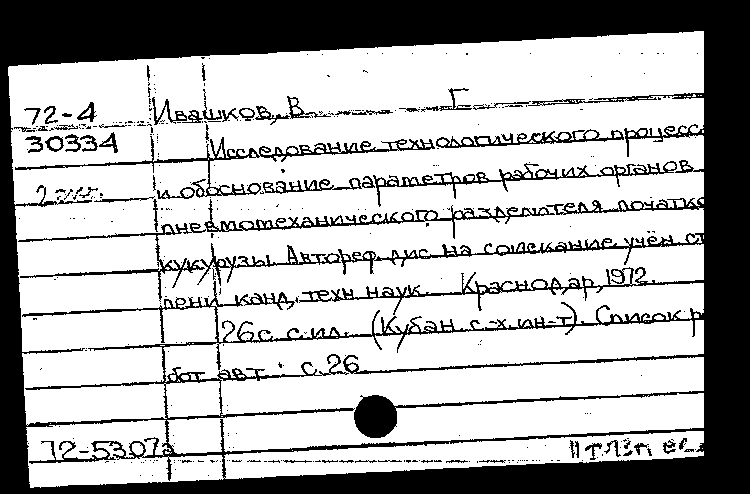 72-4 Ивашков, В. Г
30334 Исследование технологического процесса
2 экз. и обоснование параметров рабочих органов
пневмомеханического разделителя початко
кукурузы. Автореф. дис на соискание учён. ст
пени канд. техн наук. Краснодар, 1972.
26с. с.ил. (Кубан. с.-х. ин-т). Список р
бот авт : с. 26.
72-5307а